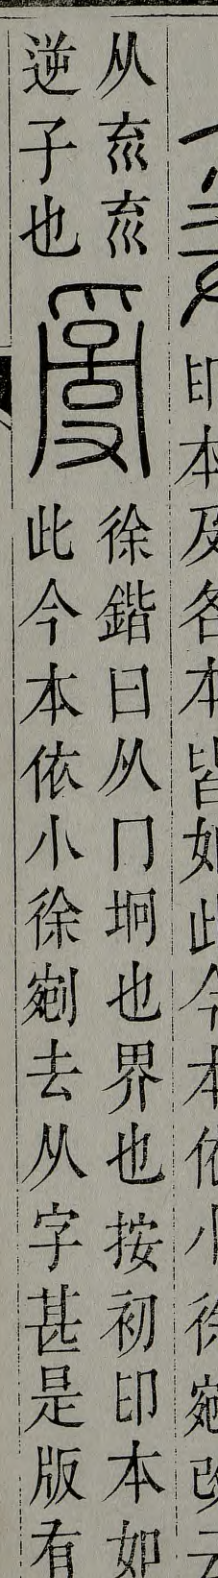 印本及各本皆如此今本依小徐剜改云
从㐬㐬
逆子也
𤔔
徐鍇曰从冂坰也界也按初印本如
此今本依小徐剜去从字甚是版有